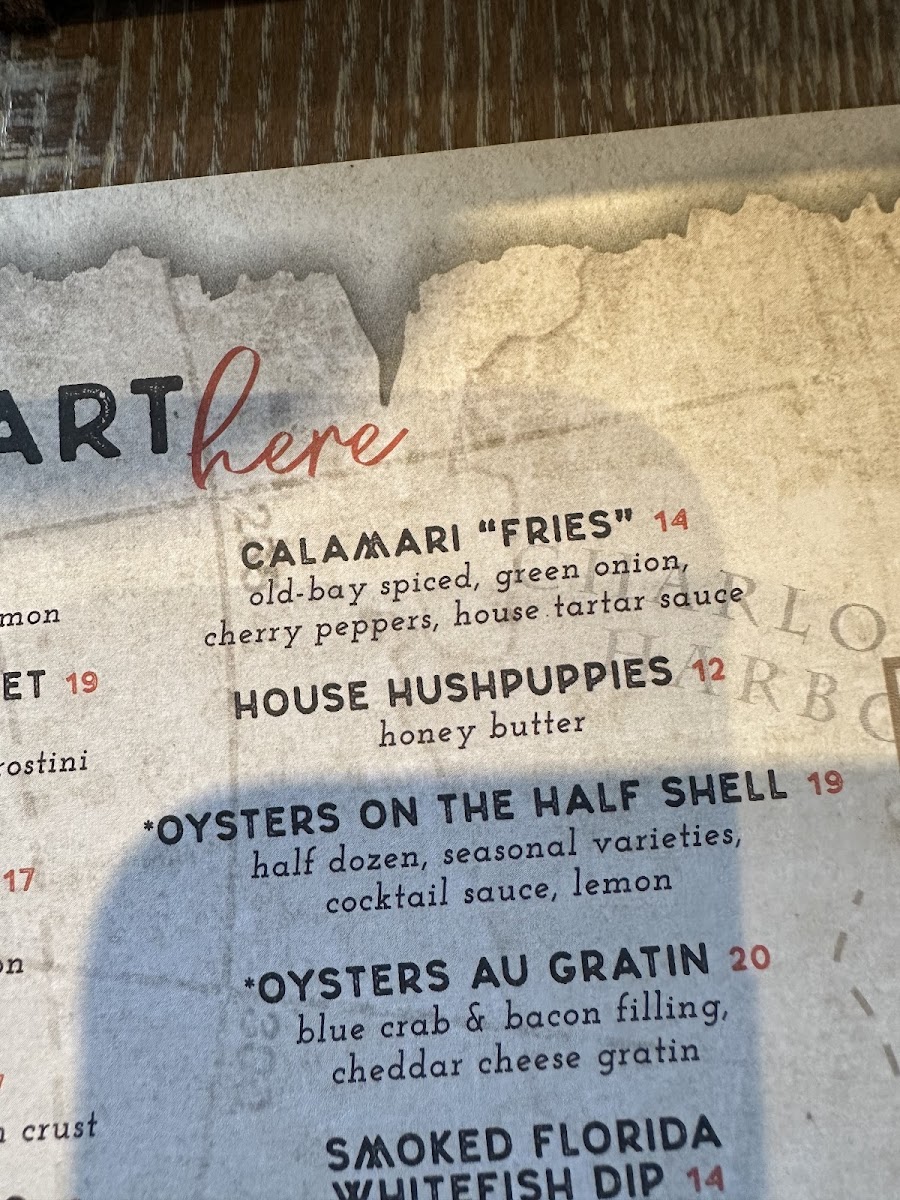 ART here
mon
ET 19
rostini
17
on
crust
CALAMARI “FRIES” 14
old-bay spiced, green onion,
cherry peppers, house tartar sauce
HOUSE HUSHPUPPIES 12
honey butter
*OYSTERS ON THE HALF SHELL 19
half dozen, seasonal varieties,
cocktail sauce, lemon
*OYSTERS AU GRATIN 20
blue crab & bacon filling,
cheddar cheese gratin
SMOKED FLORIDA
WHITEFISH DIP 14
CHARLO
HARBO